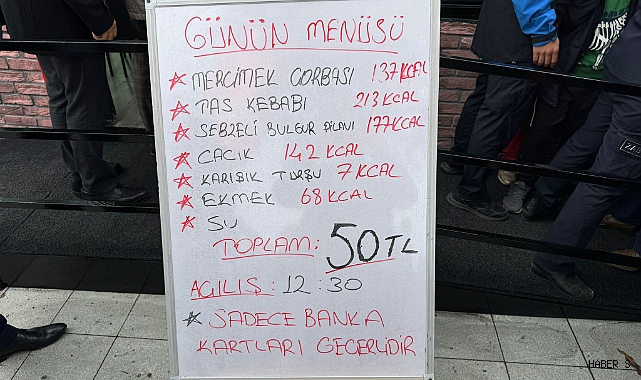 GÜNÜN MENÜSÜ
MERCİMEK ÇORBASI 137 KCAL
TAS KEBABI 213 KCAL
SEBZELİ BULGUR PİLAVI 177 KCAL
CACIK 142 KCAL
KARIŞIK TURŞU 7 KCAL
EKMEK 68 KCAL
SU
TOPLAM: 50 TL
AÇILIŞ: 12:30
SADECE BANKA
KARTLARI GEÇERLİDİR
HABER S